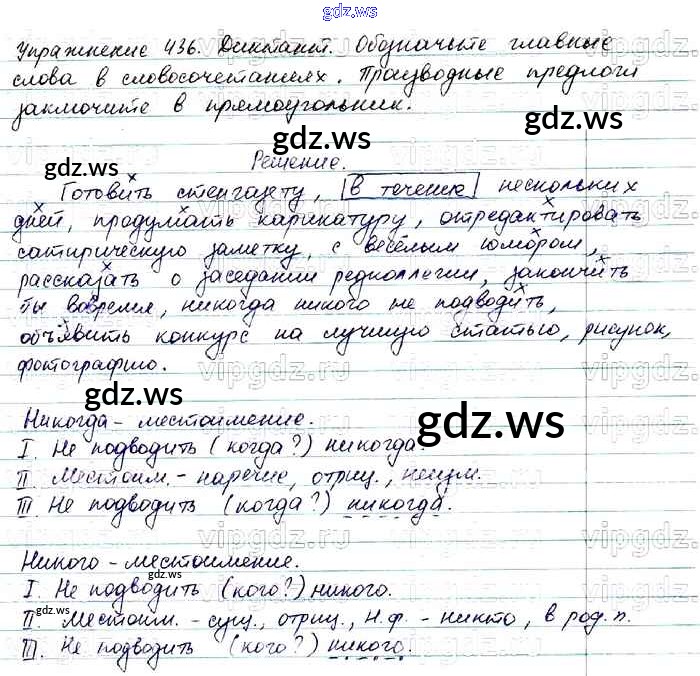 gdz.ws
Упражнение 436. Диктант. Обозначьте главные
слова в словосочетаниях. Производные предлоги
заключите в прямоугольник.
gdz.ws
gdz.ws
Решение.
Готовить стенгазету, в течение нескольких
дней, продумать карикатуру, отредактировать
сатирическую заметку, с весёлым юмором,
рассказать о заседании редколлегии, закончить
ты вовремя, никогда никого не подводить,
объявить конкурс на лучшую статью, рисунок,
фотографию.
gdz.ws
gdz.ws
Никогда - местоимение.
I. Не подводить (когда?) никогда.
II. Местоим. - наречие, отриц., неизм.
III. Не подводить (когда?) никогда.
Никого - местоимение.
gdz.ws
I. Не подводить (кого?) никого.
gdz.ws
II. Местоим. - сущ., отриц., н.ф. - никто, в род.п.
III. Не подводить (кого?) никого.
gdz.ws
gdz.ws